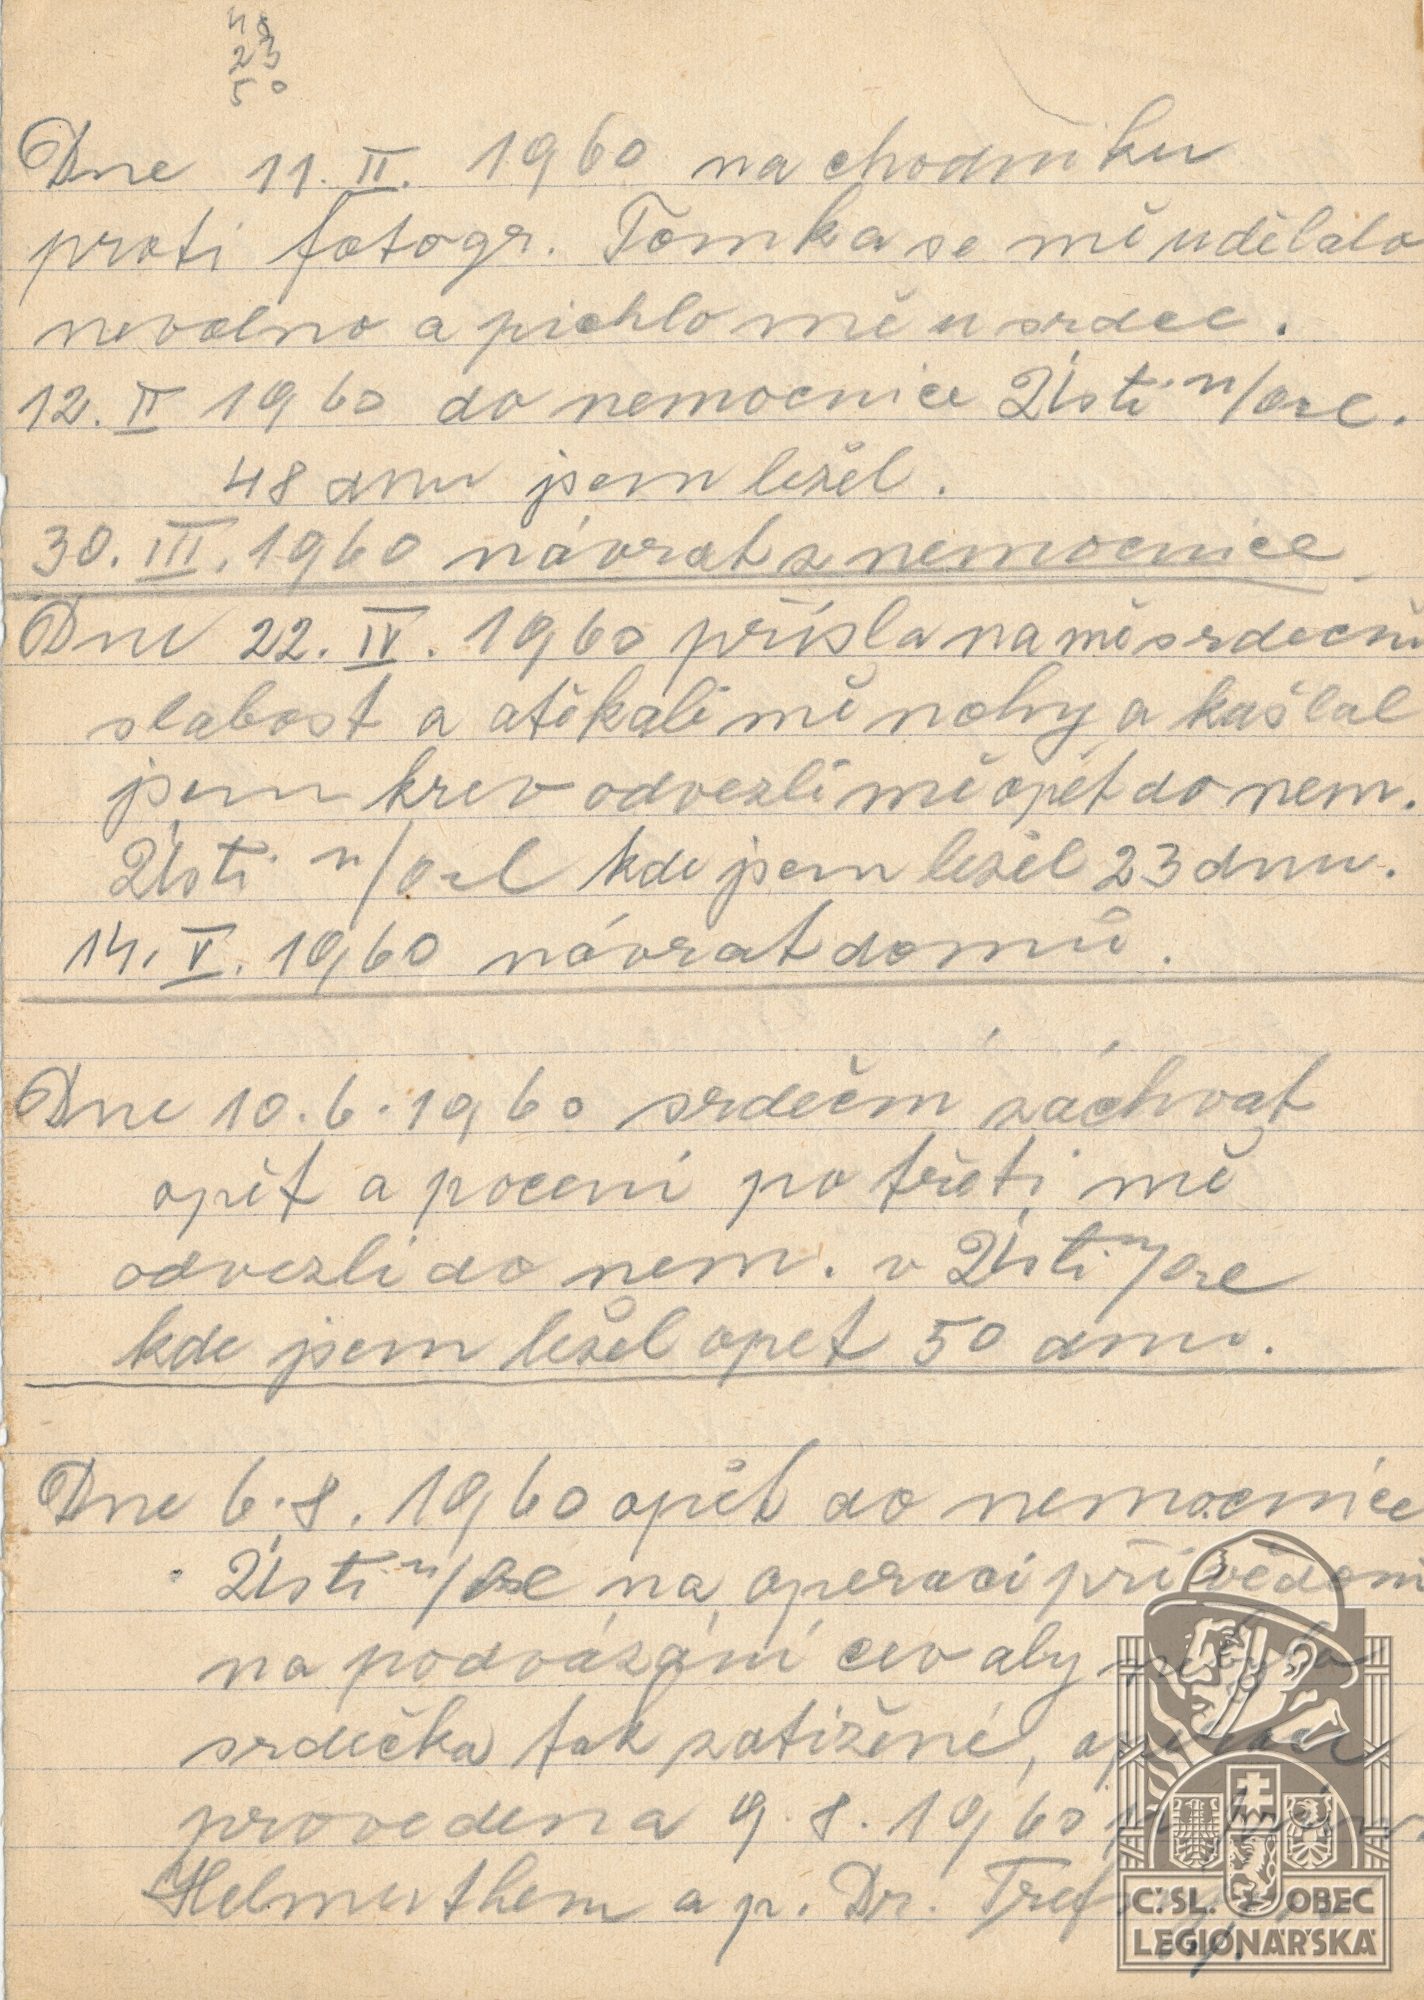 48
23
50
Dne 11. II. 1960 na chodníku
proti fotogr. Tomka se mě udělalo
nevolno a píchlo mě u srdce.
12. II 1960 do nemocnice Ústí n/Orl.
48 dnu jsem ležel.
30. III. 1960 návrat z nemocnice
Dne 22. IV. 1960 přísla na mě srdeční
slabost a otékali mě nohy a kašlal
jsem krev odvezli mě opět do nem.
Ústí n/Orl kde jsem ležel 23 dnu.
14. V. 1960 návrat domů.
Dne 10. 6. 1960 srdeční záchvat
opět a pocení po třetí mě
odvezli do nem. v Ústí n/Orl
kde jsem ležel opet 50 dnu.
Dne 6. 8. 1960 opět do nemocnice
Ústí n/Orl na operaci při vědomí
na podvázání cev aby
srdečka tak zatížené, operace
provedena 9. 8. 1960
Helmuthem a p. Dr.
Č.SL. OBEC
LEGIONÁŘSKÁ